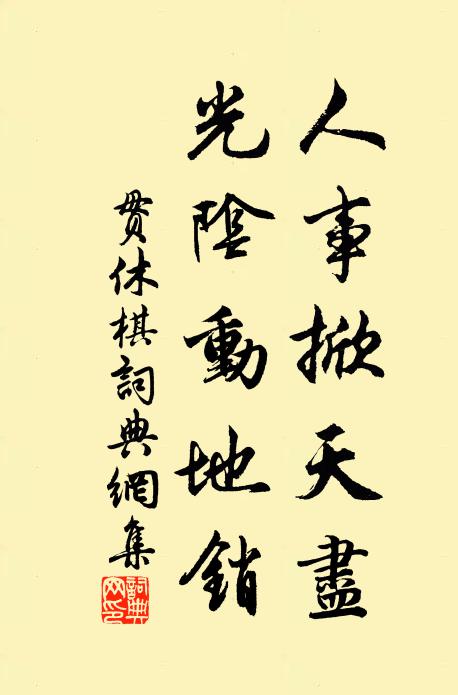 人事掀天盡
光陰動地銷
貫休棋詞典網集
詞典網印